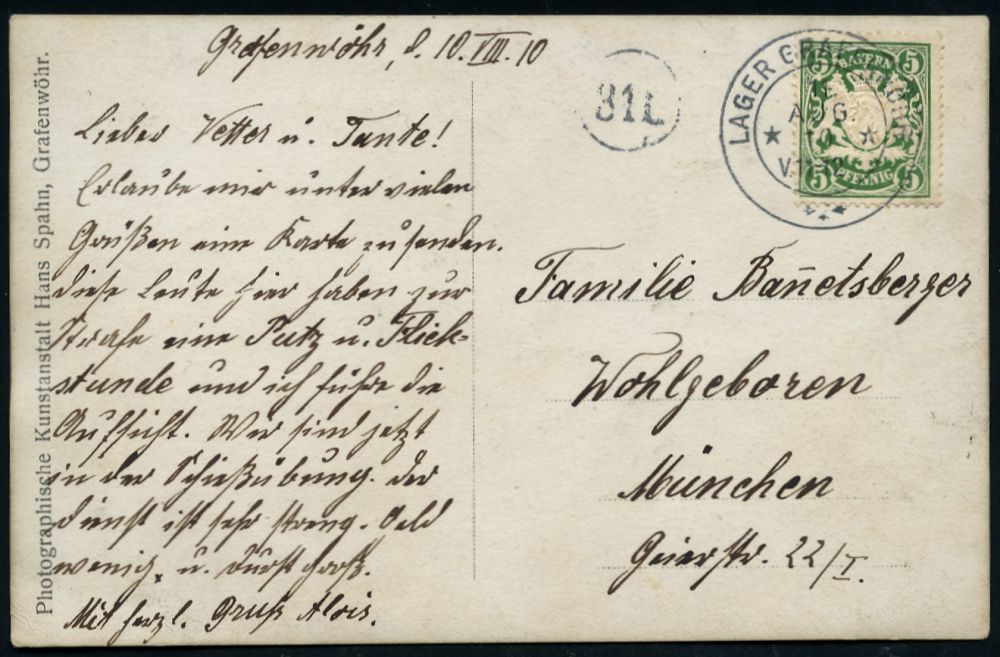 Grafenwöhr, d. 10.VIII.10
Lieber Vetter u. Tante!
Erlaube mir unter vielen
Grüßen eine Karte zu senden.
diese Leute hier haben zur
Strafe eine Putz u. Flick-
stunde und ich führe die
Aufsicht. Wir sind jetzt
in der Schießübung. der
dienst ist sehr streng. Geld
wenig, u. durst groß.
Mit herzl. Gruß Alois.
Photographische Kunstanstalt Hans Spahn, Grafenwöhr.
31L
LAGER
AUG.
10
5 BAYERN 5
5 PFENNIG 5
Familie Ban̄etsberger
Wohlgeboren
München
Geierstr. 22/I.